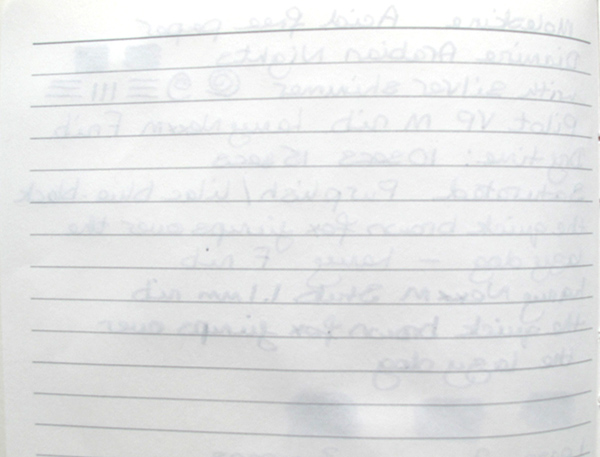 Moleskine Acid free paper
Diamine Arabian Nights
with silver shimmer
Pilot VP M nib Lamy Nexx M F nib
Dry time: 10 secs 15 secs
Saturated Purplish / lilac blue-black
the quick brown fox jumps over the
lazy dog - Lamy F nib
Lamy Nexx M Stub 1.1mm nib
the quick brown fox jumps over
the lazy dog